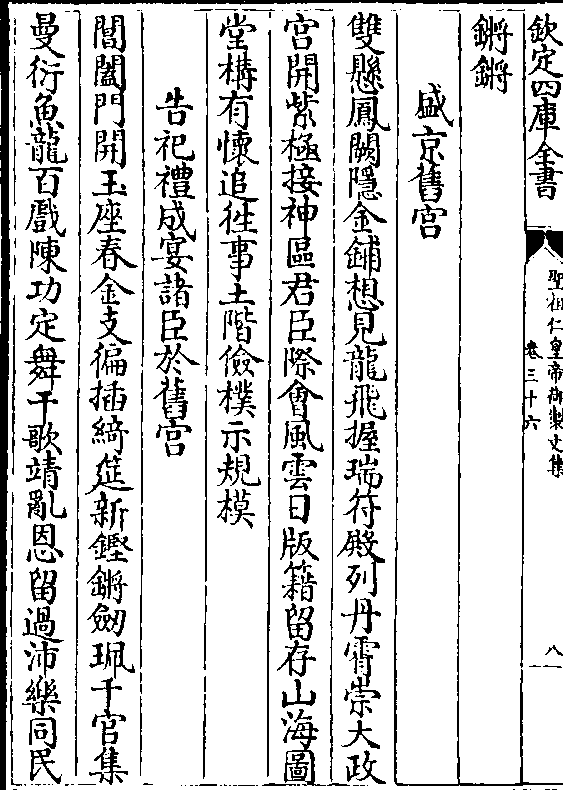 欽定四庫全書
聖祖仁皇帝御製文集
卷三十六
八
鏘鏘
盛京舊宮
雙懸鳳闕隱金鋪想見龍飛握瑞符殿列丹霄崇大政
宮開紫極接神區君臣際會風雲日版籍留存山海圖
堂構有懷追徃事土階儉樸示規模
告祀禮成宴諸臣於舊宮
閶闔門開玉座春金支徧插綺筵新鏗鏘劒珮千官集
曼衍魚龍百戲陳功定舞干歌靖亂恩留過沛樂同民